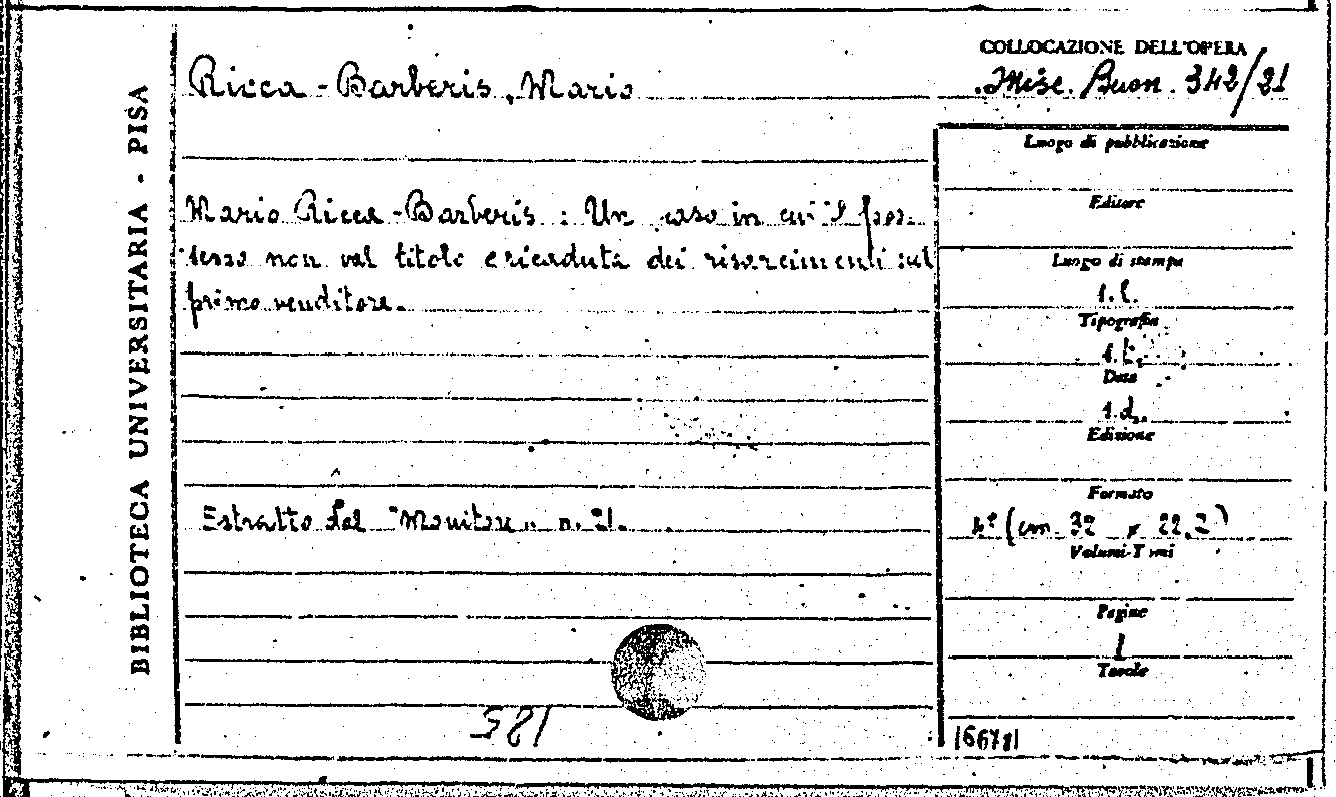 BIBLIOTECA UNIVERSITARIA - PISA
Ricca-Barberis, Mario
COLLOCAZIONE DELL'OPERA
Misc. Buon. 342/21
Mario Ricca-Barberis : Un caso in cui il pos-
sesso non val titolo e ricaduta dei risarcimenti sul
primo venditore.
Estratto dal "Monitore" n. 21.
581
Luogo di pubblicazione
Editore
Luogo di stampa
s. l.
Tipografia
s. t.
Data
s. d.
Edizione
Formato
4° (cm. 32 x 22,2)
Volumi-T mi
Pagine
1
Tavole
166781